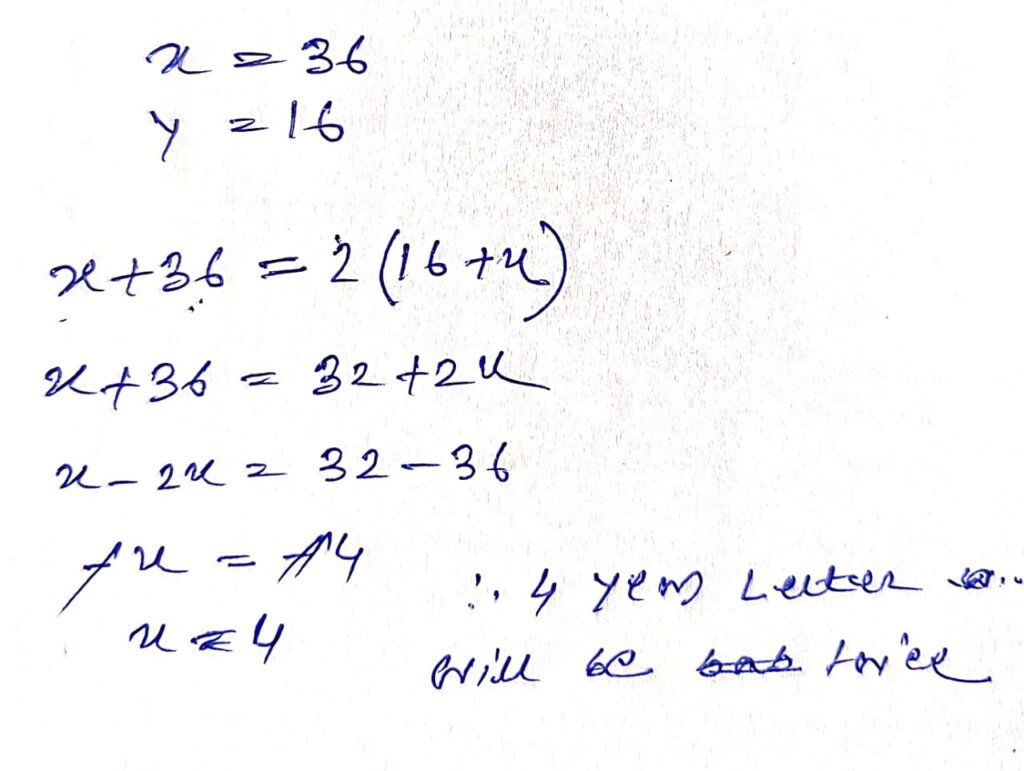 x = 36
y = 16
x + 36 = 2 (16 + x)
x + 36 = 32 + 2x
x - 2x = 32 - 36
-x = -4
x = 4
∴ 4 years Letter
will be twice